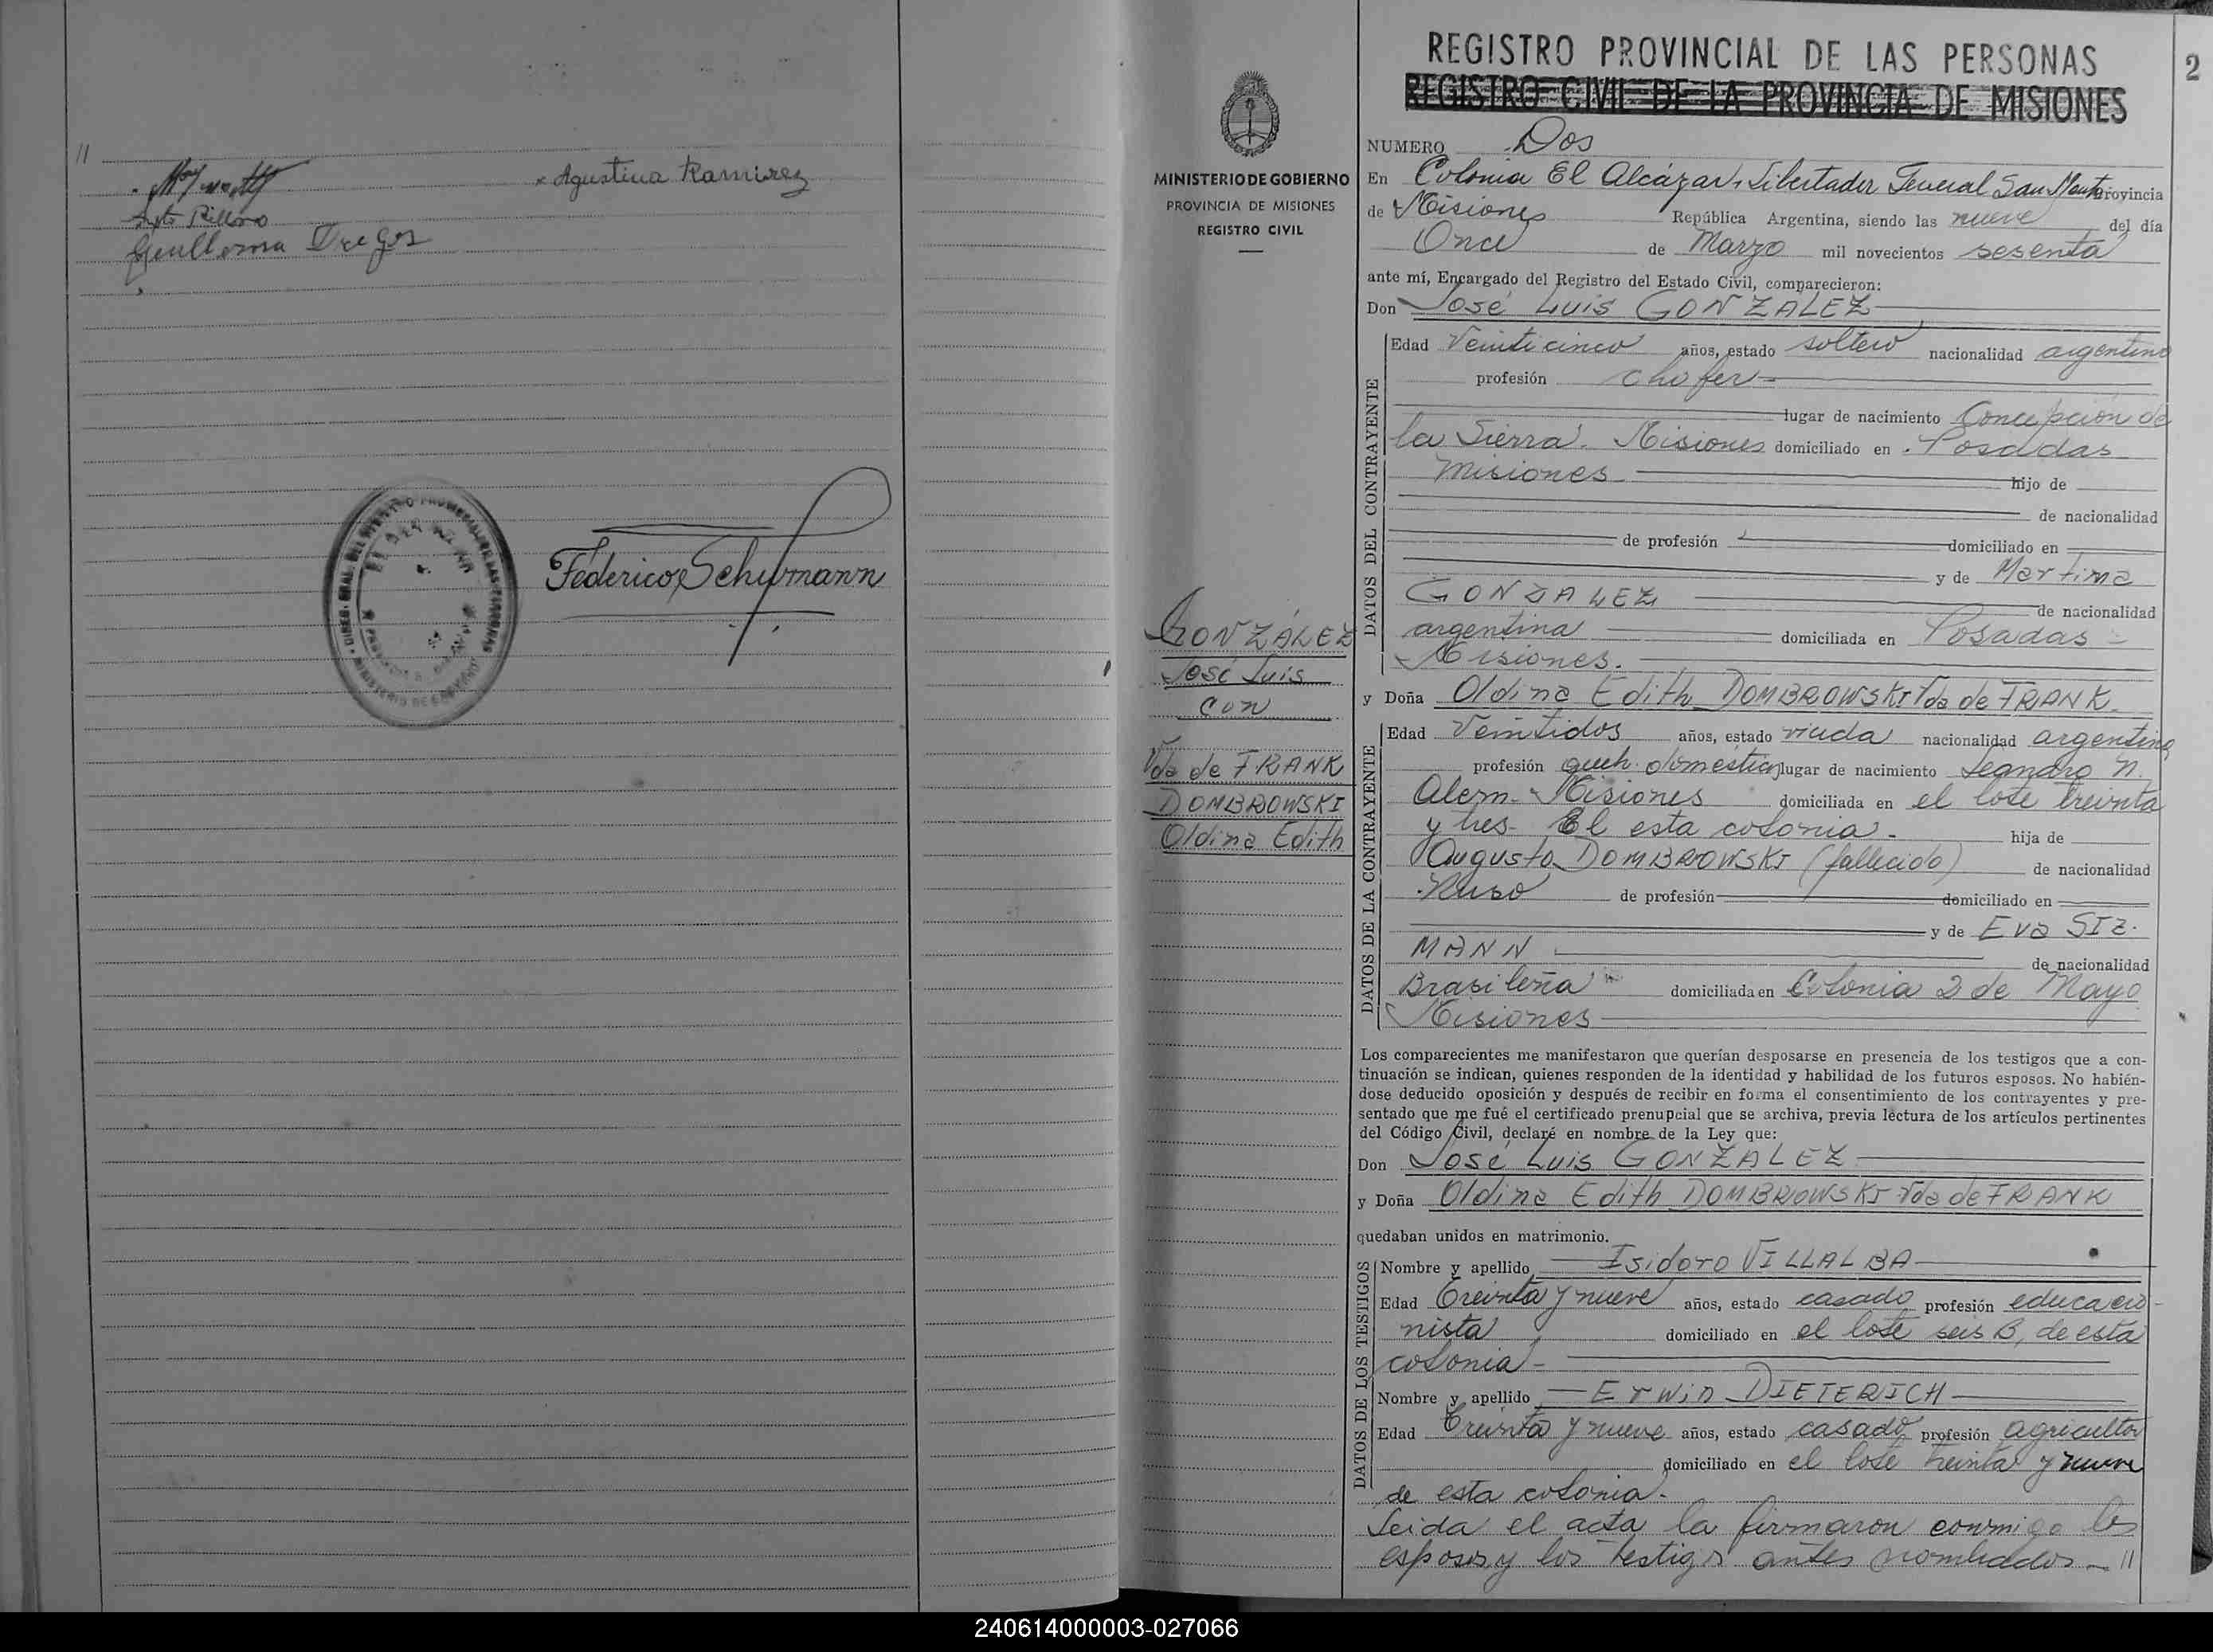 //
Agustina Ramirez
Guillerma
Federico Schumann
MINISTERIO DE GOBIERNO
PROVINCIA DE MISIONES
REGISTRO CIVIL
GONZÁLEZ
José Luis
con
Vda de FRANK
DOMBROWSKI
Oldina Edith
REGISTRO PROVINCIAL DE LAS PERSONAS
2
REGISTRO CIVIL DE LA PROVINCIA DE MISIONES
NUMERO Dos
En Colonia El Alcázar, Libertador General San Martín Provincia
de Misiones República Argentina, siendo las nueve del día
Once de Marzo mil novecientos sesenta
ante mí, Encargado del Registro del Estado Civil, comparecieron:
Don José Luis GONZALEZ
DATOS DEL CONTRAYENTE
Edad Veinticinco años, estado soltero nacionalidad argentino
profesión chofer
lugar de nacimiento Concepción de
la Sierra. Misiones domiciliado en Posadas
Misiones hijo de
de nacionalidad
de profesión domiciliado en
y de Martina
GONZALEZ de nacionalidad
argentina domiciliada en Posadas
Misiones.
y Doña Oldina Edith DOMBROWSKI Vda de FRANK
DATOS DE LA CONTRAYENTE
Edad Veintidos años, estado viuda nacionalidad argentina
profesión queh. domestica lugar de nacimiento Leandro N.
Alem. Misiones domiciliada en el lote treinta
y tres esta colonia. hija de
Augusto DOMBROWSKI (fallecido) de nacionalidad
Ruso de profesión domiciliado en
y de Eva SIZ-
MANN de nacionalidad
Brasileña domiciliada en Colonia 2 de Mayo
Misiones
Los comparecientes me manifestaron que querían desposarse en presencia de los testigos que a con-
tinuación se indican, quienes responden de la identidad y habilidad de los futuros esposos. No habién-
dose deducido oposición y después de recibir en forma el consentimiento de los contrayentes y pre-
sentado que me fué el certificado prenupcial que se archiva, previa lectura de los artículos pertinentes
del Código Civil, declaré en nombre de la Ley que:
Don José Luis GONZALEZ
y Doña Oldina Edith DOMBROWSKI Vda de FRANK
quedaban unidos en matrimonio.
DATOS DE LOS TESTIGOS
Nombre y apellido Isidoro VILLALBA
Edad Treinta y nueve años, estado casado profesión educacio-
nista domiciliado en el lote seis B, de esta
colonia
Nombre y apellido Erwin DIETERICH
Edad Treinta y nueve años, estado casado profesión agricultor
domiciliado en el lote treinta y nueve
de esta colonia.
Leida el acta la firmaron conmigo los
esposos y los testigos antes nombrados. //
240614000003-027066